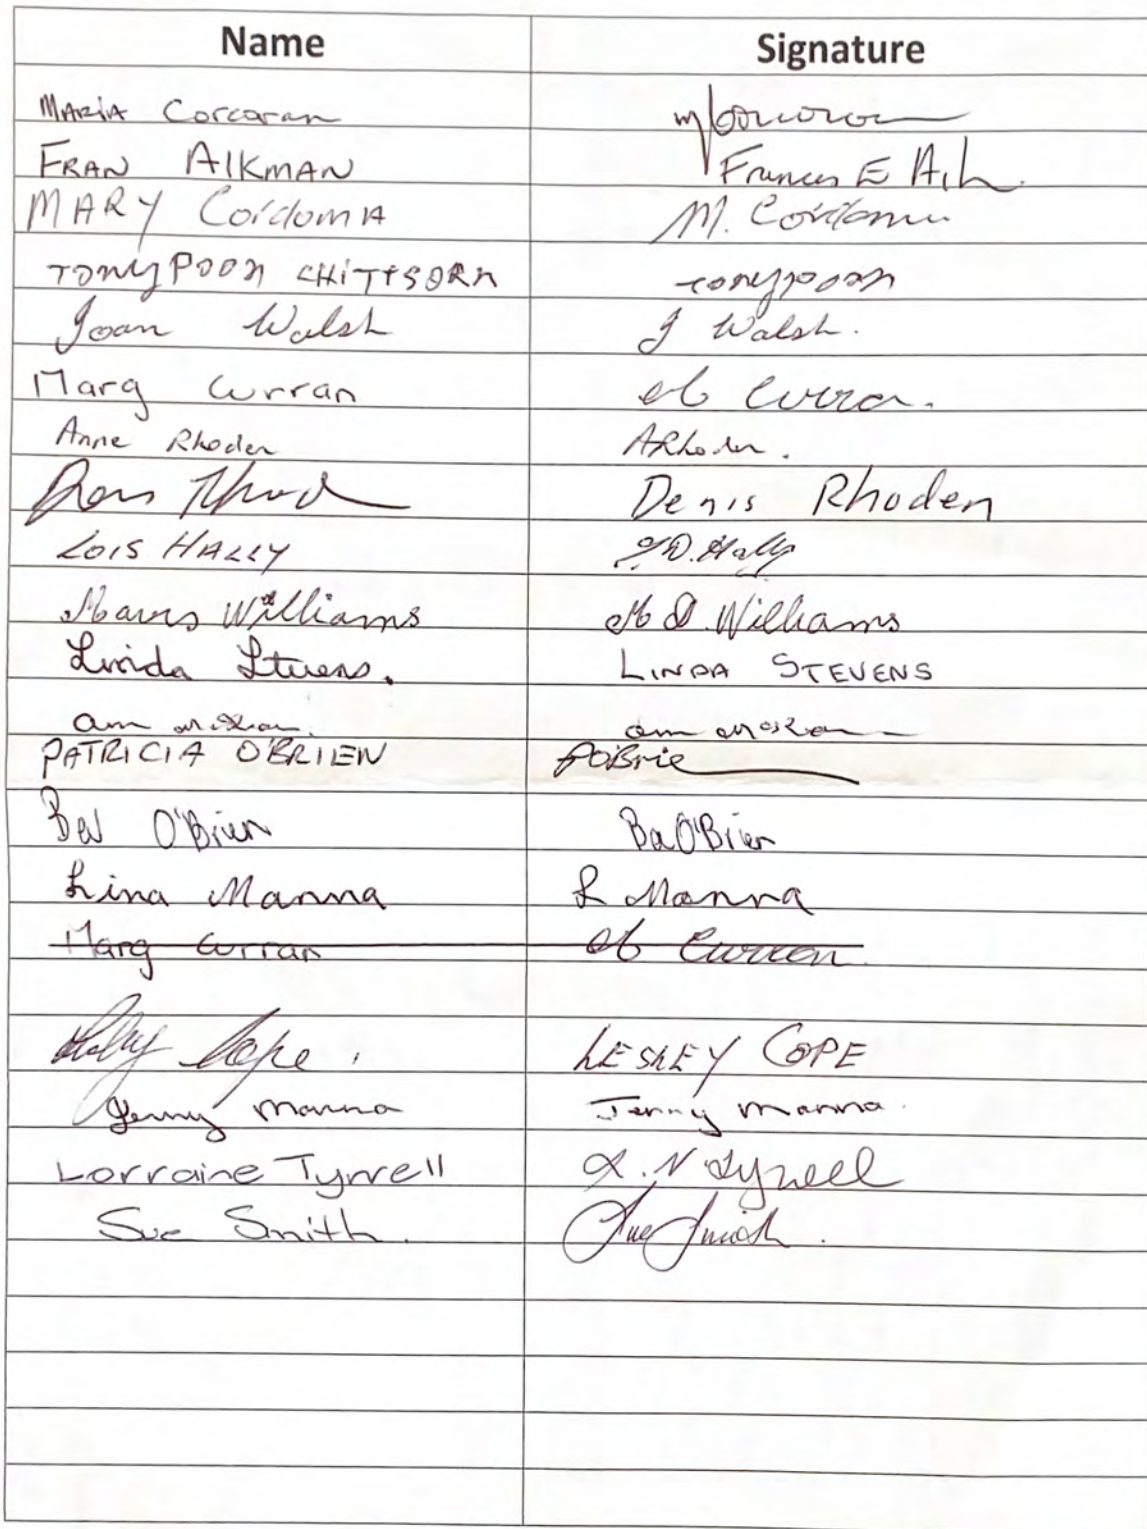 Name Signature
MARIA Corcoran
FRAN AIKMAN Frances E
MARY Coidoma M.
TONY POON CHITTSORN tonypoon
Joan Walsh J Walsh.
Marg Curran M Curran.
Anne Rhoden ARhoden.
Denis Rhoden
LOIS HALLY L.D. Hally
Mavis Williams M D. Williams
Linda Stevens. LINDA STEVENS
PATRICIA O'BRIEN POBrie
Bev O'Brien Bev O'Brien
Lina Manna L Manna
Marg Curran M Curran.
Cope. LESLEY COPE
Jenny Manna Jenny Manna.
Lorraine Tyrrell L.N Tyrrell
Sue Smith. Sue Smith.